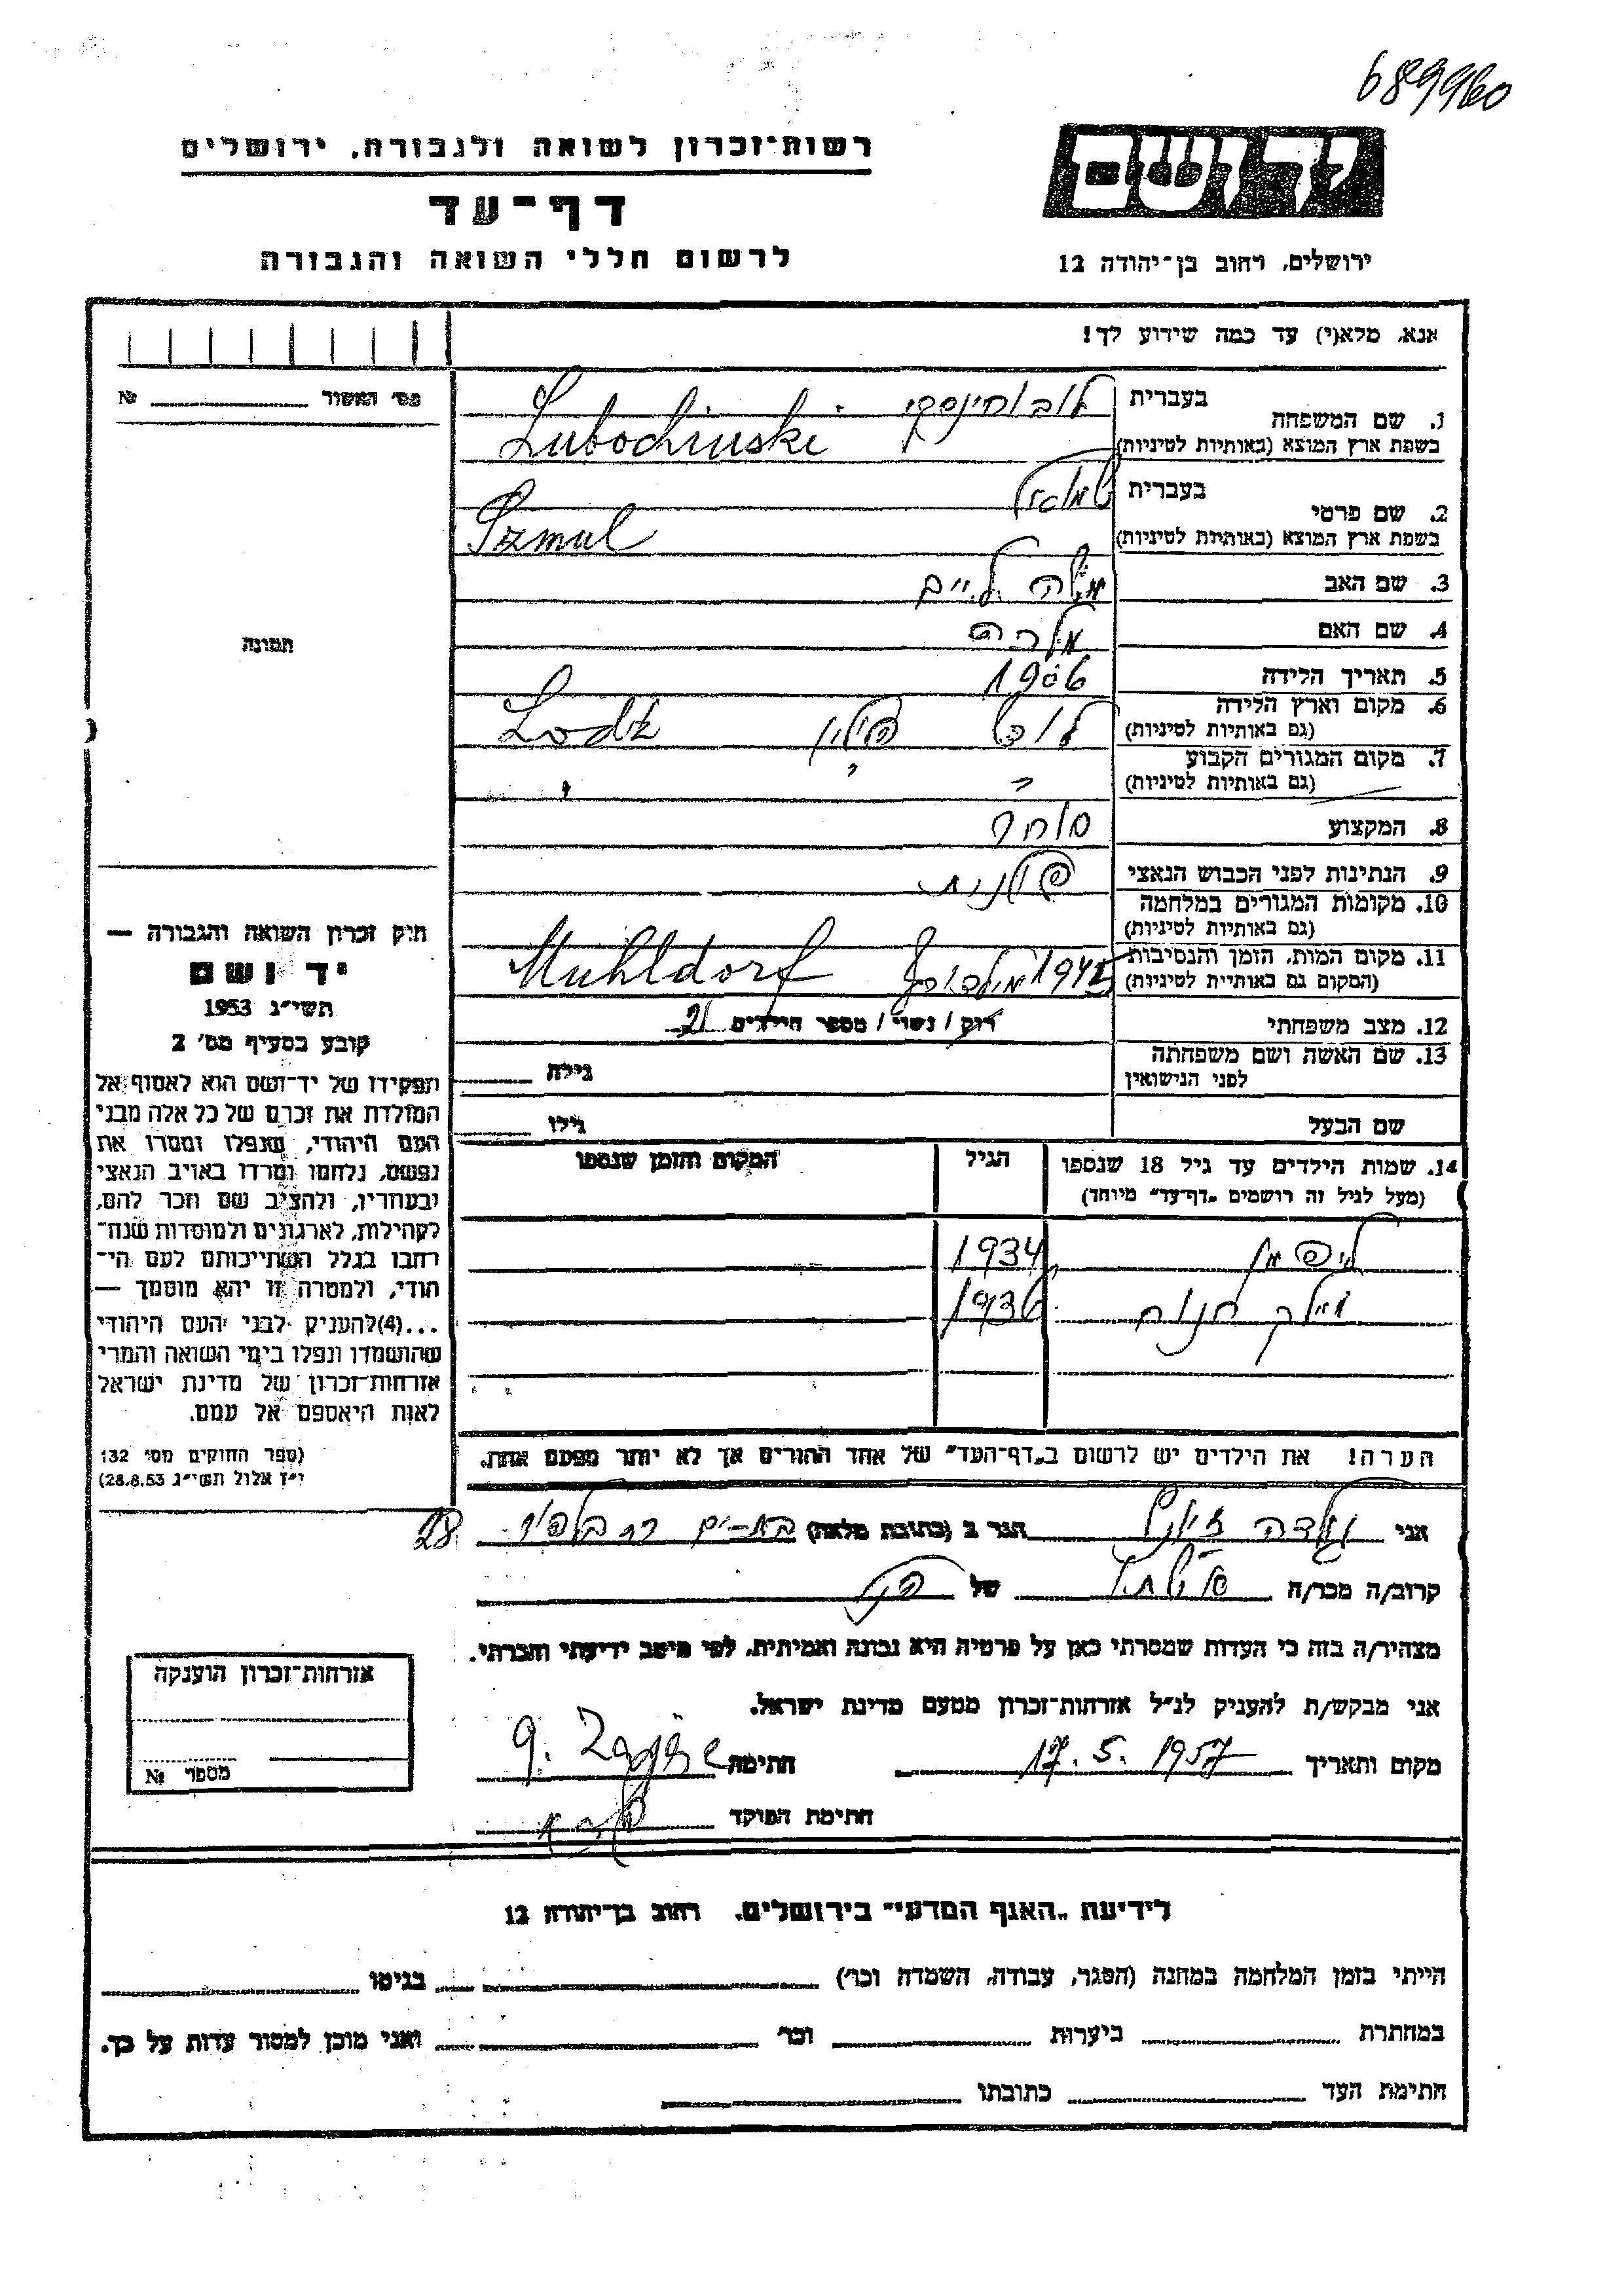 689960
רשות־זכרון לשואה ולגבורה, ירושלים
דף־עד
לרשום חללי השואה והגבורה
יד ושם
ירושלים, רחוב בן־יהודה 12
אנא, מלא(י) עד כמה שידוע לך!
מס׳ האשור №
תמונה
1. שם המשפחה בעברית לובוחינסקי
בשפת ארץ המוצא (באותיות לטיניות) Lubochinski
2. שם פרטי בעברית שמואל
בשפת ארץ המוצא (באותיות לטיניות) Szmul
3. שם האב משה חיים
4. שם האם
5. תאריך הלידה 1906
6. מקום וארץ הלידה לודז פולין Lodz
(גם באותיות לטיניות)
7. מקום המגורים הקבוע
(גם באותיות לטיניות)
8. המקצוע סוחר
9. הנתינות לפני הכבוש הנאצי פולנית
10. מקומות המגורים במלחמה
(גם באותיות לטיניות)
11. מקום המות, הזמן והנסיבות 1945 מילדורף Muhldorf
(המקום גם באותיות לטיניות)
12. מצב משפחתי רוק / נשוי / מספר הילדים 2
13. שם האשה ושם משפחתה גילה
לפני הנישואין
שם הבעל גילו
14. שמות הילדים עד גיל 18 שנספו הגיל המקום והזמן שנספו
(מעל לגיל זה רושמים „דף־עד״ מיוחד)
ליפמן 1934
חנוך 1936
הערה! את הילדים יש לרשום ב„דף־העד״ של אחד ההורים אך לא יותר מפעם אחת.
חוק זכרון השואה והגבורה —
יד ושם
תשי״ג 1953
קובע בסעיף מס׳ 2
תפקידו של יד־ושם הוא לאסוף אל
המולדת את זכרם של כל אלה מבני
העם היהודי, שנפלו ומסרו את
נפשם, נלחמו ומרדו באויב הנאצי
ובעוזריו, ולהציב שם וזכר להם,
לקהילות, לארגונים ולמוסדות שנח־
רבו בגלל השתייכותם לעם הי־
הודי, ולמטרה זו יהא מוסמך —
...(4)להעניק לבני העם היהודי
שהושמדו ונפלו בימי השואה והמרי
אזרחות־זכרון של מדינת ישראל
לאות היאספם אל עמם.
(ספר החוקים מס׳ 132
י״ז אלול תשי״ג 28.8.53)
אני הגר ב (כתובת מלאה) בת-ים 28
קרוב/ה מכר/ה של
מצהיר/ה בזה כי העדות שמסרתי כאן על פרטיה היא נכונה ואמיתית, לפי מיטב ידיעתי והכרתי.
אני מבקש/ת להעניק לנ״ל אזרחות־זכרון מטעם מדינת ישראל.
מקום ותאריך 17.5.1957 חתימה
חתימת הפוקד
אזרחות־זכרון הוענקה
מספר №
לידיעת „האגף המדעי״ בירושלים, רחוב בן־יהודה 12
הייתי בזמן המלחמה במחנה (הסגר, עבודה, השמדה וכר׳) בגיטו
במחתרת ביערות וכר׳ ואני מוכן למסור עדות על כך.
חתימת העד כתובתו